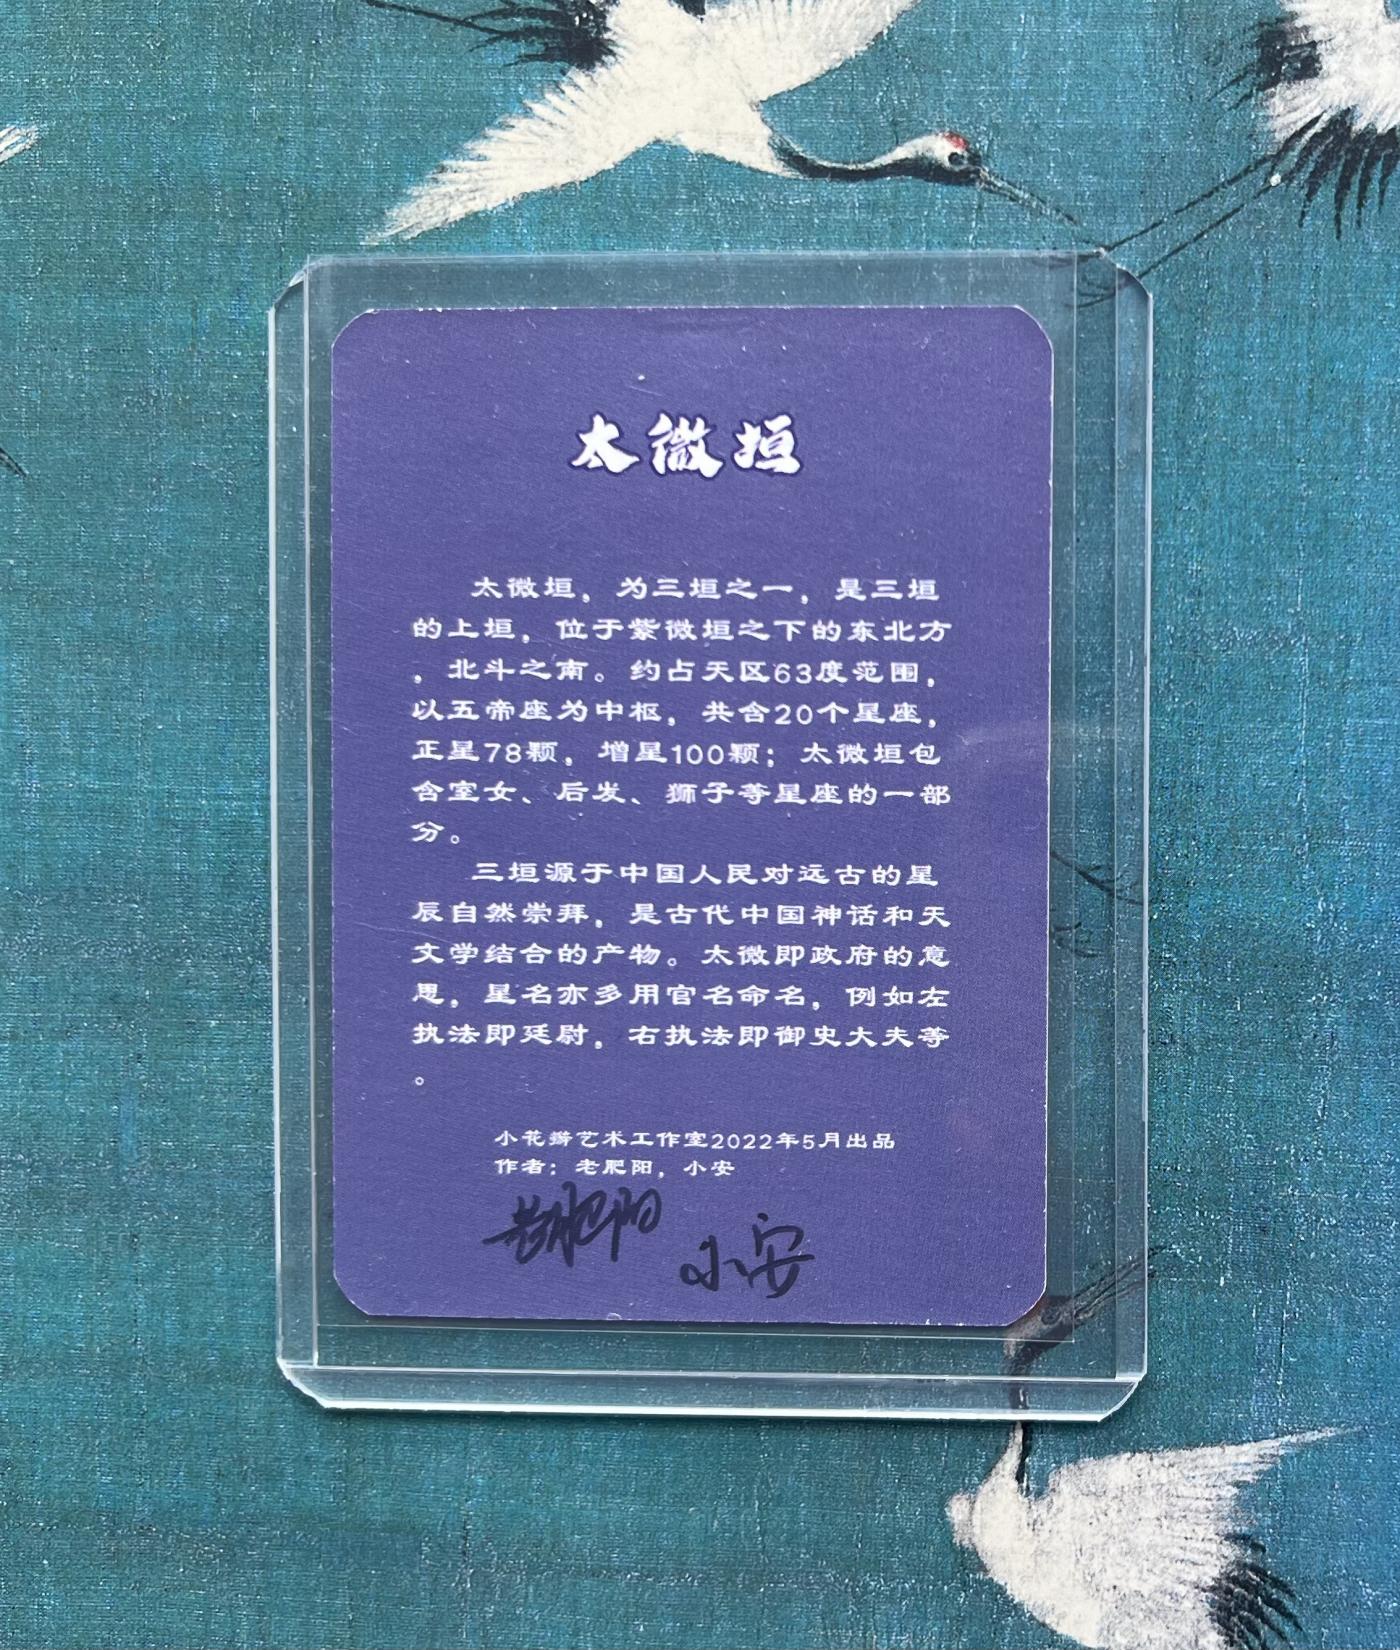 太微垣
太微垣，为三垣之一，是三垣
的上垣，位于紫微垣之下的东北方
，北斗之南。约占天区63度范围，
以五帝座为中枢，共含20个星座，
正星78颗，增星100颗；太微垣包
含室女、后发、狮子等星座的一部
分。
三垣源于中国人民对远古的星
辰自然崇拜，是古代中国神话和天
文学结合的产物。太微即政府的意
思，星名亦多用官名命名，例如左
执法即廷尉，右执法即御史大夫等
。
小花辫艺术工作室2022年5月出品
作者：老肥阳，小安
老肥阳
小安